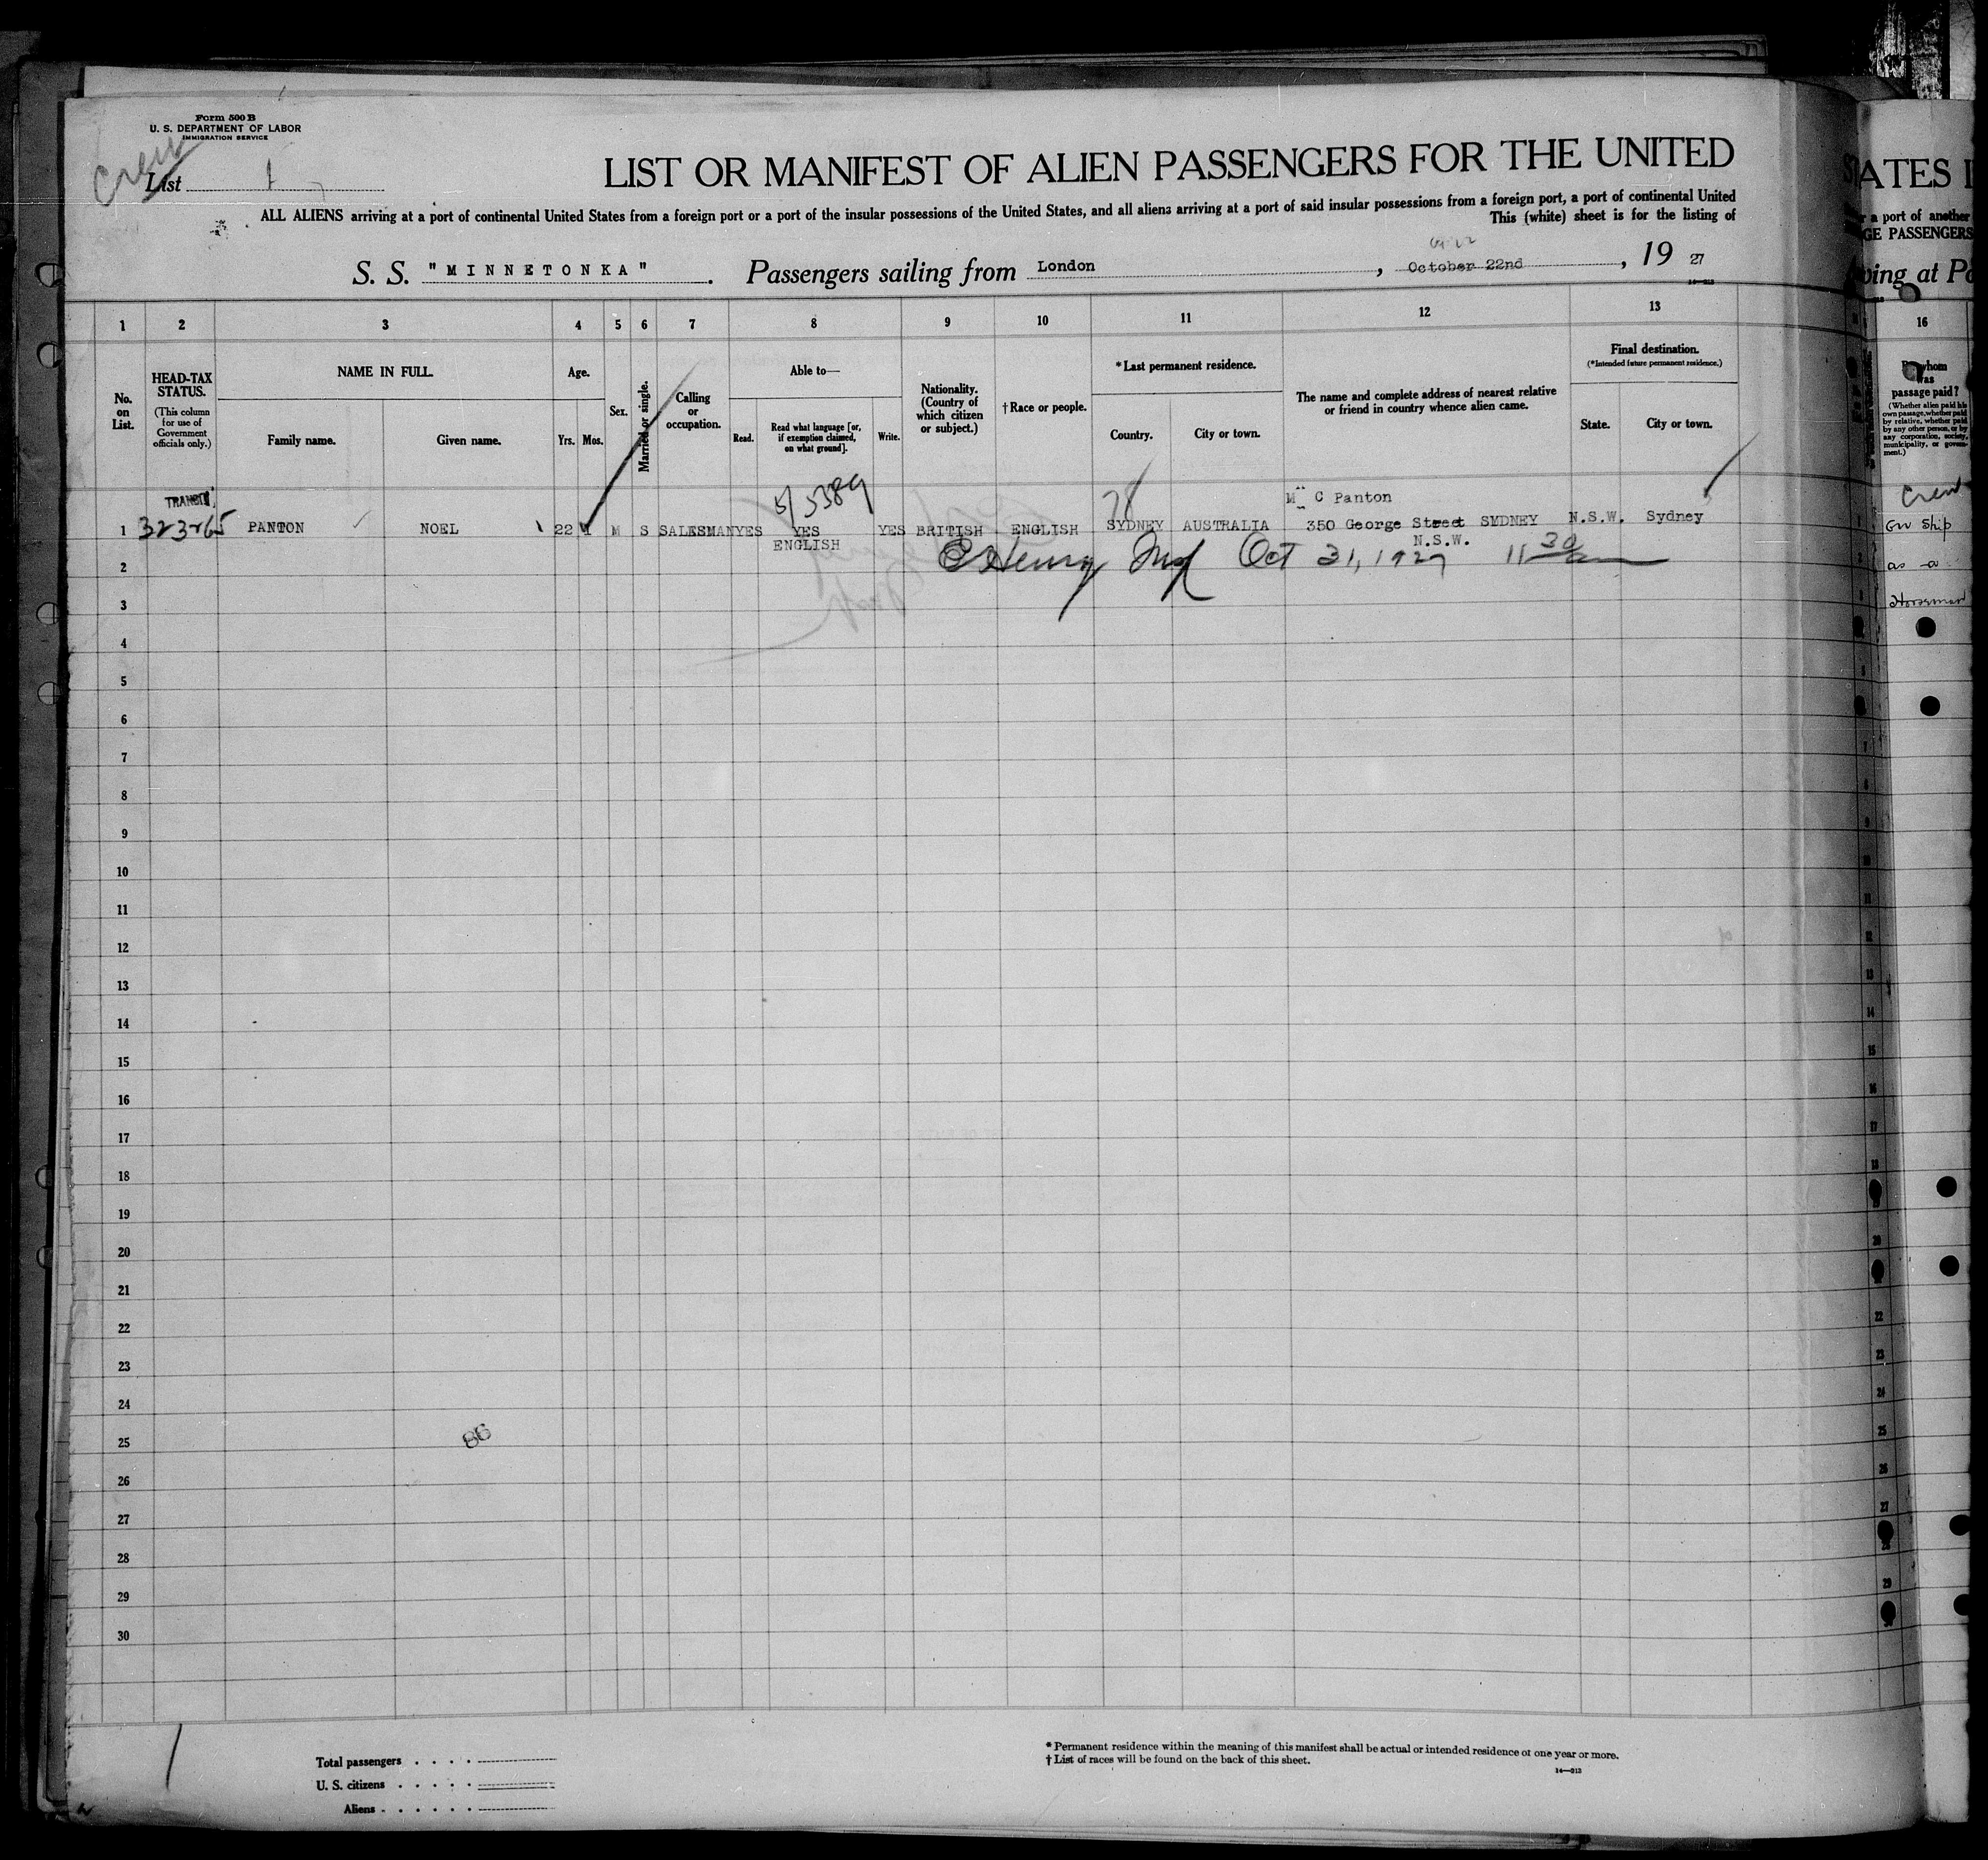 Form 500 B
U. S. DEPARTMENT OF LABOR
IMMIGRATION SERVICE
Crew
List 1
LIST OR MANIFEST OF ALIEN PASSENGERS FOR THE UNITED
ALL ALIENS arriving at a port of continental United States from a foreign port or a port of the insular possessions of the United States, and all aliens arriving at a port of said insular possessions from a foreign port, a port of continental United
This (white) sheet is for the listing of
S. S. "MINNETONKA". Passengers sailing from London, October 22nd, 19 27
1 2 3 4 5 6 7 8 9 10 11 12 13
No. on List.
HEAD-TAX STATUS.
(This column for use of Government officials only.)
NAME IN FULL.
Family name. Given name.
Age.
Yrs. Mos.
Sex.
Married or single.
Calling or occupation.
Able to—
Read. Read what language [or, if exemption claimed, on what ground]. Write.
Nationality. (Country of which citizen or subject.)
†Race or people.
*Last permanent residence.
Country. City or town.
The name and complete address of nearest relative or friend in country whence alien came.
Final destination.
(*Intended future permanent residence.)
State. City or town.
TRANSIT
5/5389
78
M C Panton
1 323265 PANTON NOEL 22 1 M S SALESMAN YES YES YES BRITISH ENGLISH SYDNEY AUSTRALIA 350 George Street SYDNEY N.S.W. Sydney
ENGLISH N.S.W.
E Henry Oct 31, 1927 11 30
2
3
4
5
6
7
8
9
10
11
12
13
14
15
16
17
18
19
20
21
22
23
24
25
86
26
27
28
29
30
Total passengers
U. S. citizens
Aliens
* Permanent residence within the meaning of this manifest shall be actual or intended residence of one year or more.
† List of races will be found on the back of this sheet.
14—213
ATES I
r a port of another
GE PASSENGERS
ving at Po
16
By whom was passage paid?
(Whether alien paid his own passage, whether paid by relative, whether paid by any other person, or by any corporation, society, municipality, or government.)
Crew
on Ship
as a
Horseman